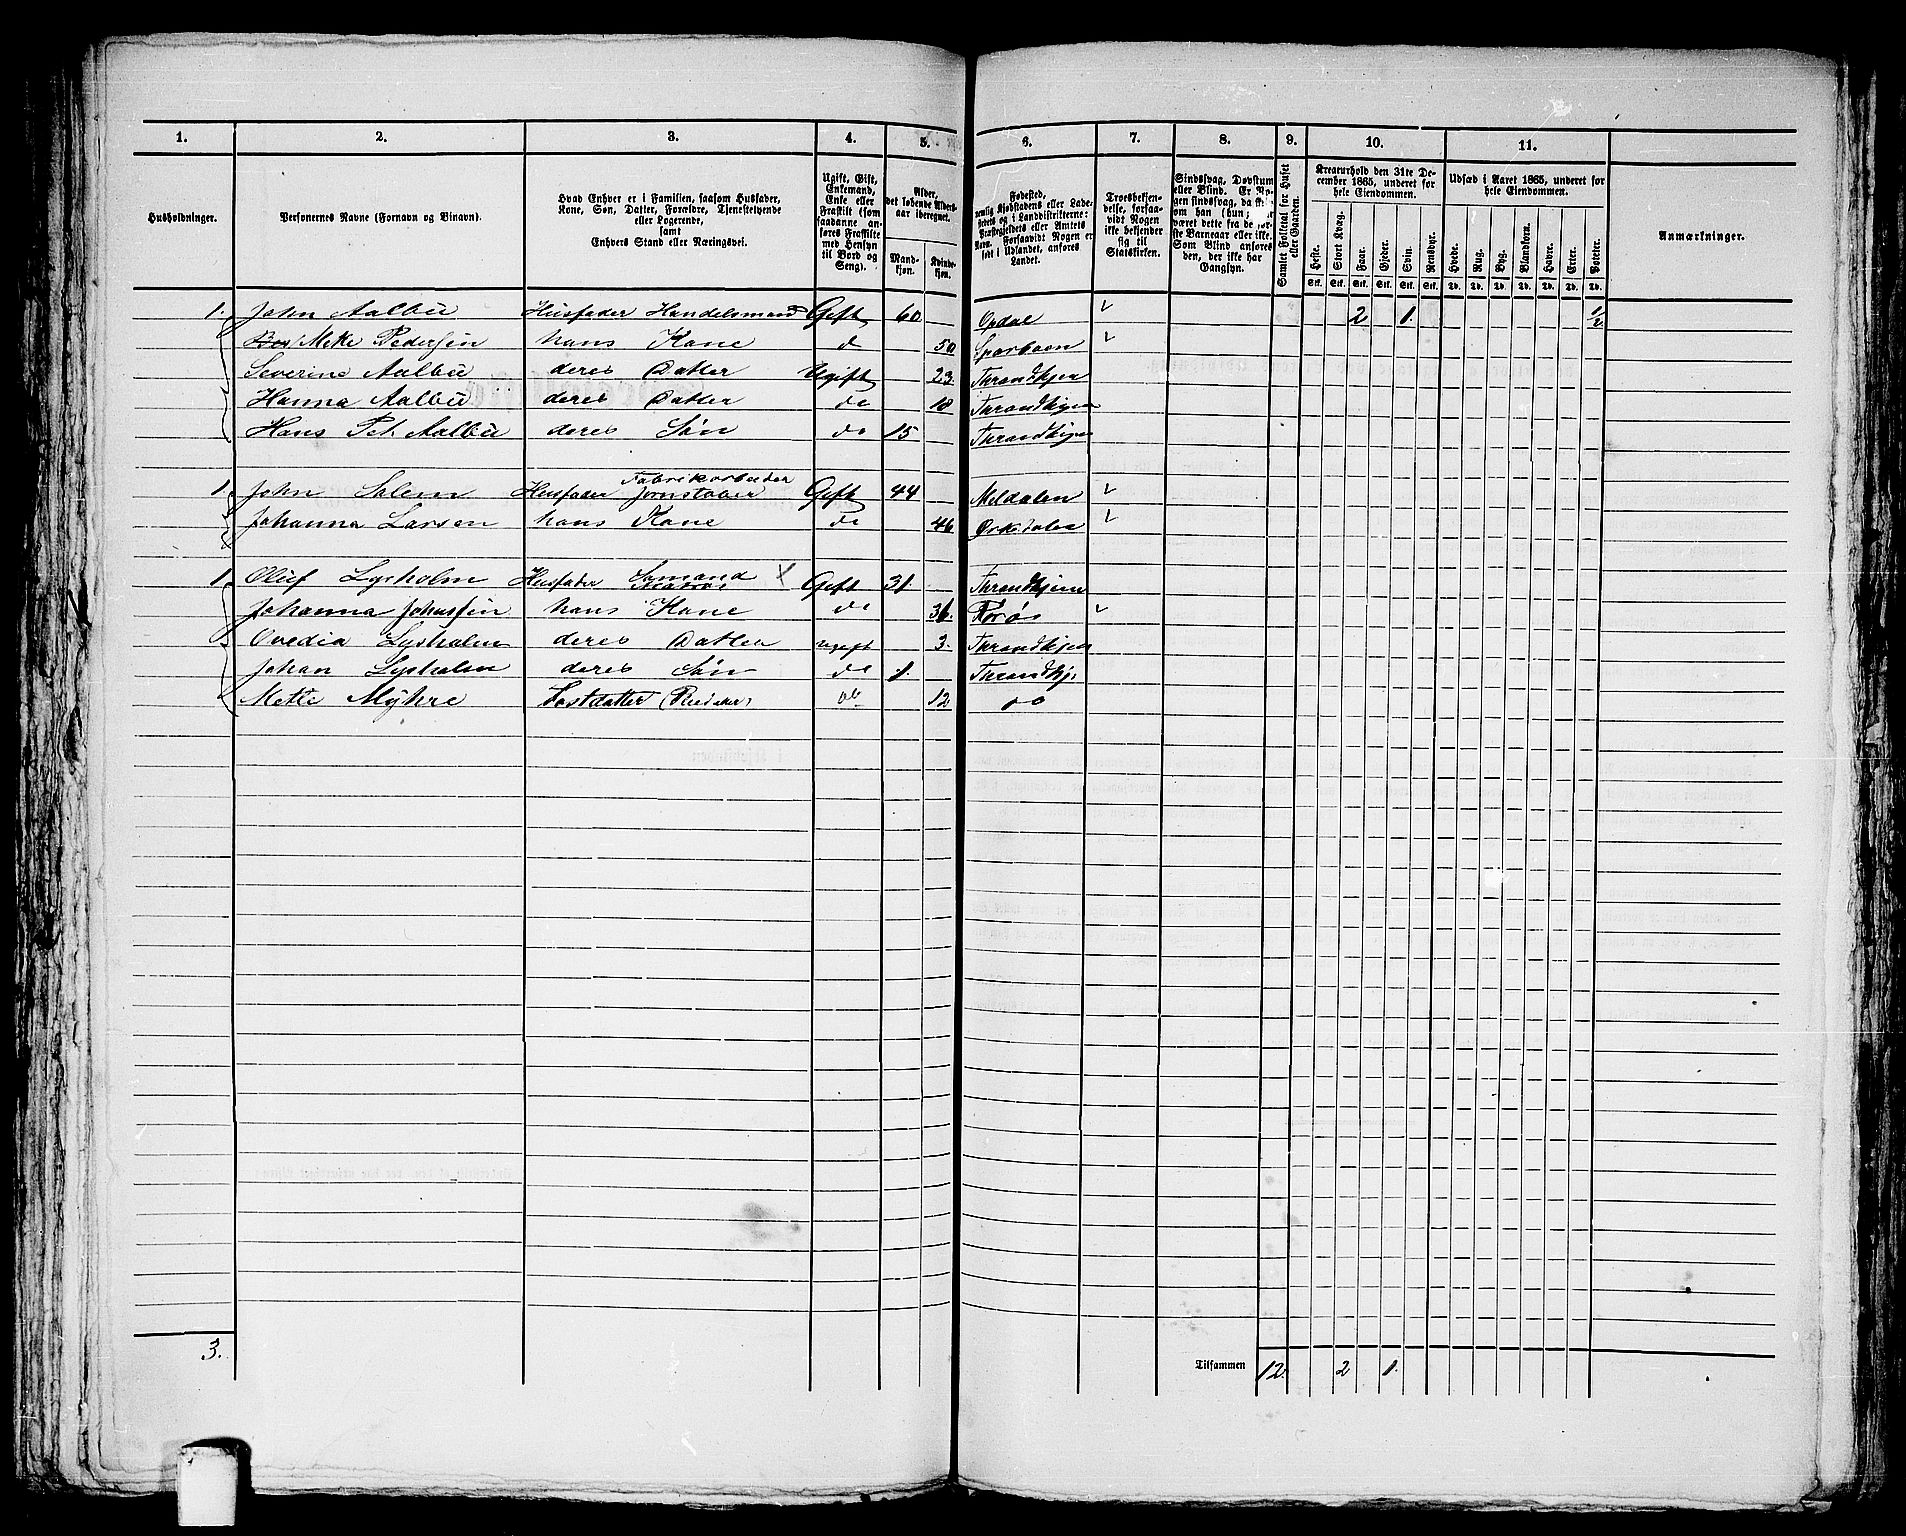 1. 2. 3. 4. 5. 6. 7. 8. 9. 10. 11.
Husholdninger.
Personernes Navne (Fornavn og Binavn).
Hvad Enhver er i Familien, saasom Husfader,
Kone, Søn, Datter, Forældre, Tjenestetyende
eller Logerende,
samt
Enhvers Stand eller Næringsvei.
Ugift, Gift,
Enkemand,
Enke eller
Fraskilt (som
saadanne an-
føres Fraskilte
med Hensyn
til Bord og
Seng).
Alder,
det løbende Alders-
aar iberegnet.
Mand-
kjøn.
Kvinde-
kjøn.
Fødested,
nemlig Kjøbstadens eller Lade-
stedets og i Landdistrikterne:
Præstegjeldets eller Amtets
Navn. Forsaavidt Nogen er
født i Udlandet, anføres
Landet.
Troesbekjen-
delse, forsaa-
vidt Nogen
ikke bekjender
sig til
Statskirken.
Sindssvag, Døvstum
eller Blind. Er No-
gen sindssvag, da
om han (hun) har
været dette fra de før-
ste Barneaar eller ikke.
Som Blind anføres
den, der ikke har
Gangsyn.
Samlet Folketal for Huset
eller Gaarden.
Kreaturhold den 31te De-
cember 1865, underet for
hele Eiendommen.
Heste. Stort Kvæg. Faar. Gjeder. Svin. Rensdyr.
Stk. Stk. Stk. Stk. Stk. Stk.
Udsæd i Aaret 1865, underet for
hele Eiendommen.
Hvede. Rug. Byg. Blandkorn. Havre. Erter. Poteter.
Td. Td. Td. Td. Td. Td. Td.
Anmærkninger.
1. John Aalbu Husfader Handelsmand Gift 60 Opdal 2 1. 1/2
Meke Pedersen hans Kone do 50 Sparboen
Severine Aalbu deres Datter Ugift 23. Throndhjem
Hanna Aalbu deres Datter do 18 Throndhjem
Hans Pet. Aalbu deres Søn do 15 Throndhjem
Fabrikarbeider
1. John Salem Husfader Jernstøber Gift 44 Meldalen
Johanna Larsen hans Kone do 46 Orkedalen
1. Oluf Lysholm Husfader Sømand Matros Gift 31. Throndhjem
Johanna Johnsen hans Kone do 36. Rørøs
Ovedia Lysholm deres Datter ugift 3. Throndhjem
Johan Lysholm deres Søn do 1. Throndhj.
Mette Myhre Fostdatter do 12 do
3. Tilsammen 12 2 1.